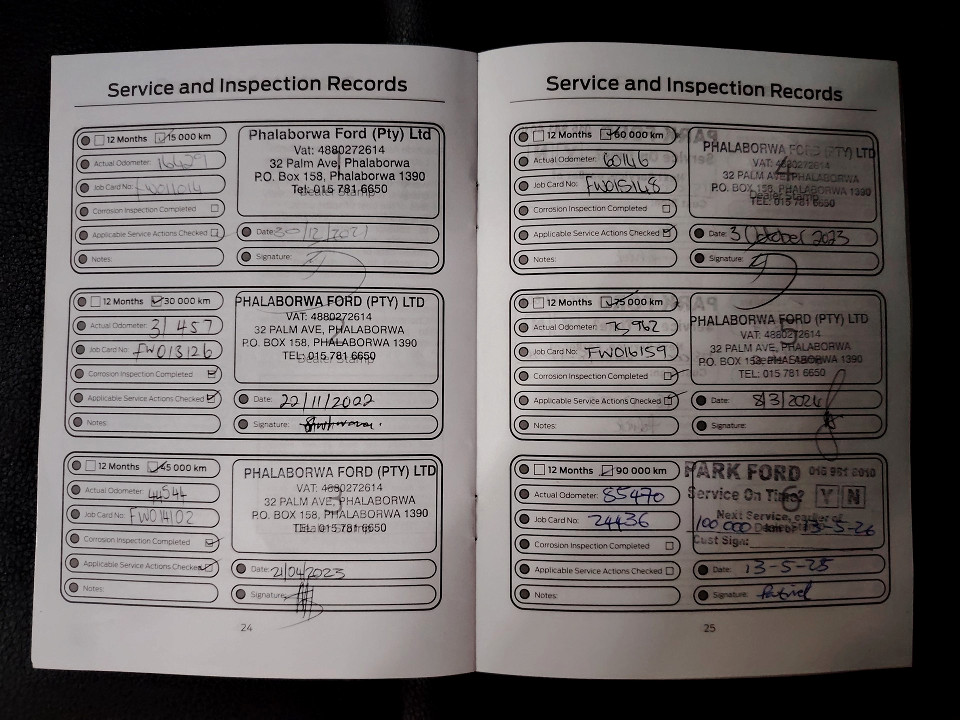 Service and Inspection Records
12 Months 15 000 km
Actual Odometer: 16429
Job Card No: FW011014
Corrosion Inspection Completed
Applicable Service Actions Checked
Notes:
Phalaborwa Ford (Pty) Ltd
Vat: 4880272614
32 Palm Ave, Phalaborwa
P.O. Box 158, Phalaborwa 1390
Tel: 015 781 6650
Dealer Stamp
Date: 30/12/2021
Signature:
12 Months 30 000 km
Actual Odometer: 31457
Job Card No: FW013126
Corrosion Inspection Completed
Applicable Service Actions Checked
Notes:
PHALABORWA FORD (PTY) LTD
VAT: 4880272614
32 PALM AVE, PHALABORWA
P.O. BOX 158, PHALABORWA 1390
TEL: 015 781 6650
Dealer Stamp
Date: 22/11/2022
Signature:
12 Months 45 000 km
Actual Odometer: 44544
Job Card No: FW014102
Corrosion Inspection Completed
Applicable Service Actions Checked
Notes:
PHALABORWA FORD (PTY) LTD
VAT: 4880272614
32 PALM AVE, PHALABORWA
P.O. BOX 158, PHALABORWA 1390
TEL: 015 781 6650
Dealer Stamp
Date: 21/04/2023
Signature:
24
Service and Inspection Records
12 Months 60 000 km
Actual Odometer: 60146
Job Card No: FW015148
Corrosion Inspection Completed
Applicable Service Actions Checked
Notes:
PHALABORWA FORD (PTY) LTD
VAT: 4880272614
32 PALM AVE, PHALABORWA
P.O. BOX 158, PHALABORWA 1390
Dealer Stamp
TEL: 015 781 6650
Date: 3 October 2023
Signature:
12 Months 75 000 km
Actual Odometer: 75,962
Job Card No: FW016159
Corrosion Inspection Completed
Applicable Service Actions Checked
Notes:
PHALABORWA FORD (PTY) LTD
VAT: 4880272614
32 PALM AVE, PHALABORWA
P.O. BOX 158, PHALABORWA 1390
TEL: 015 781 6650
Date: 8/3/2024
Signature:
12 Months 90 000 km
Actual Odometer: 85470
Job Card No: 24436
Corrosion Inspection Completed
Applicable Service Actions Checked
Notes:
PARK FORD
Service On Time? Y N
Next Service, earlier of
100 000 km or 13-5-26
Cust Sign:
Date: 13-5-25
Signature:
25